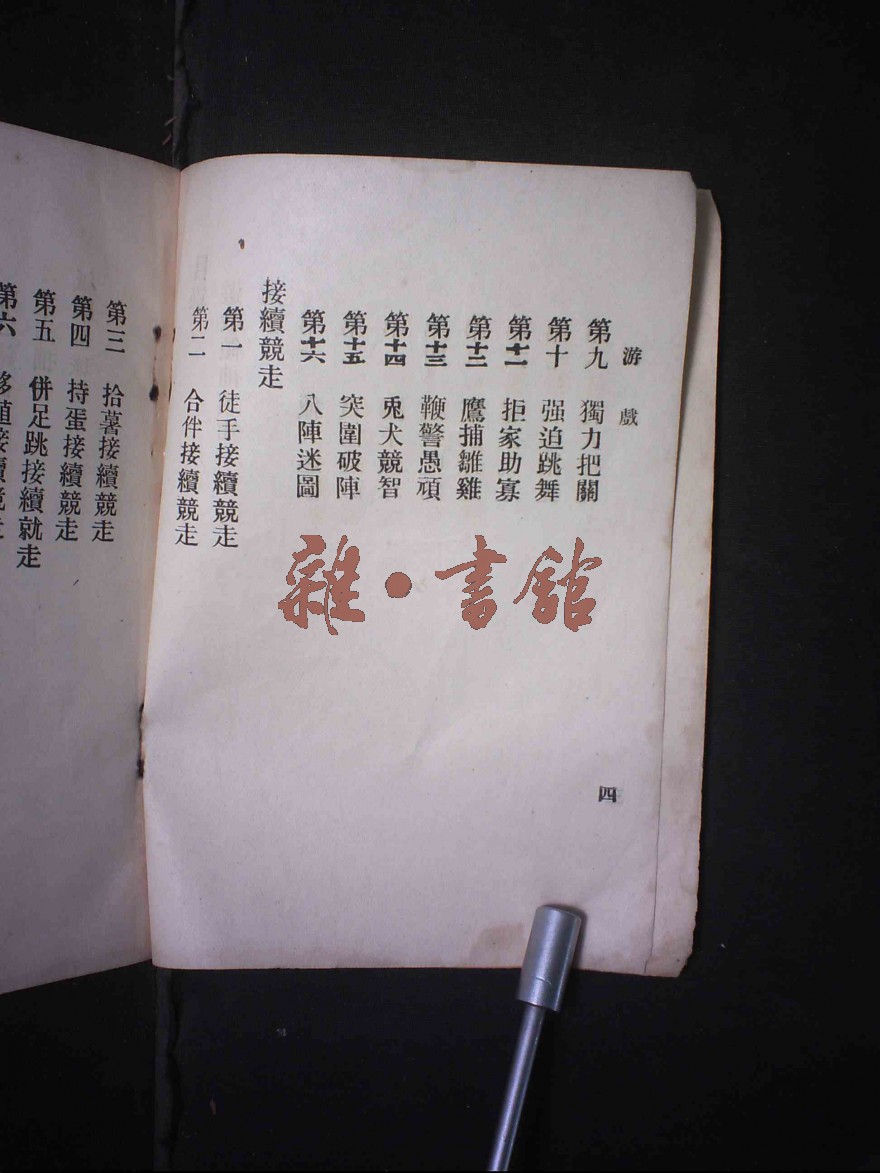 游戲
第九 獨力把關
第十 强迫跳舞
第十一 拒家助寡
第十二 鷹捕雛雞
第十三 鞭警愚頑
第十四 兎犬競智
第十五 突圍破陣
第十六 八陣迷圖
接續競走
第一 徒手接續競走
第二 合伴接續競走
四
雜·書館
第三 拾薯接續競走
第四 持蛋接續競走
第五 併足跳接續就走
第六